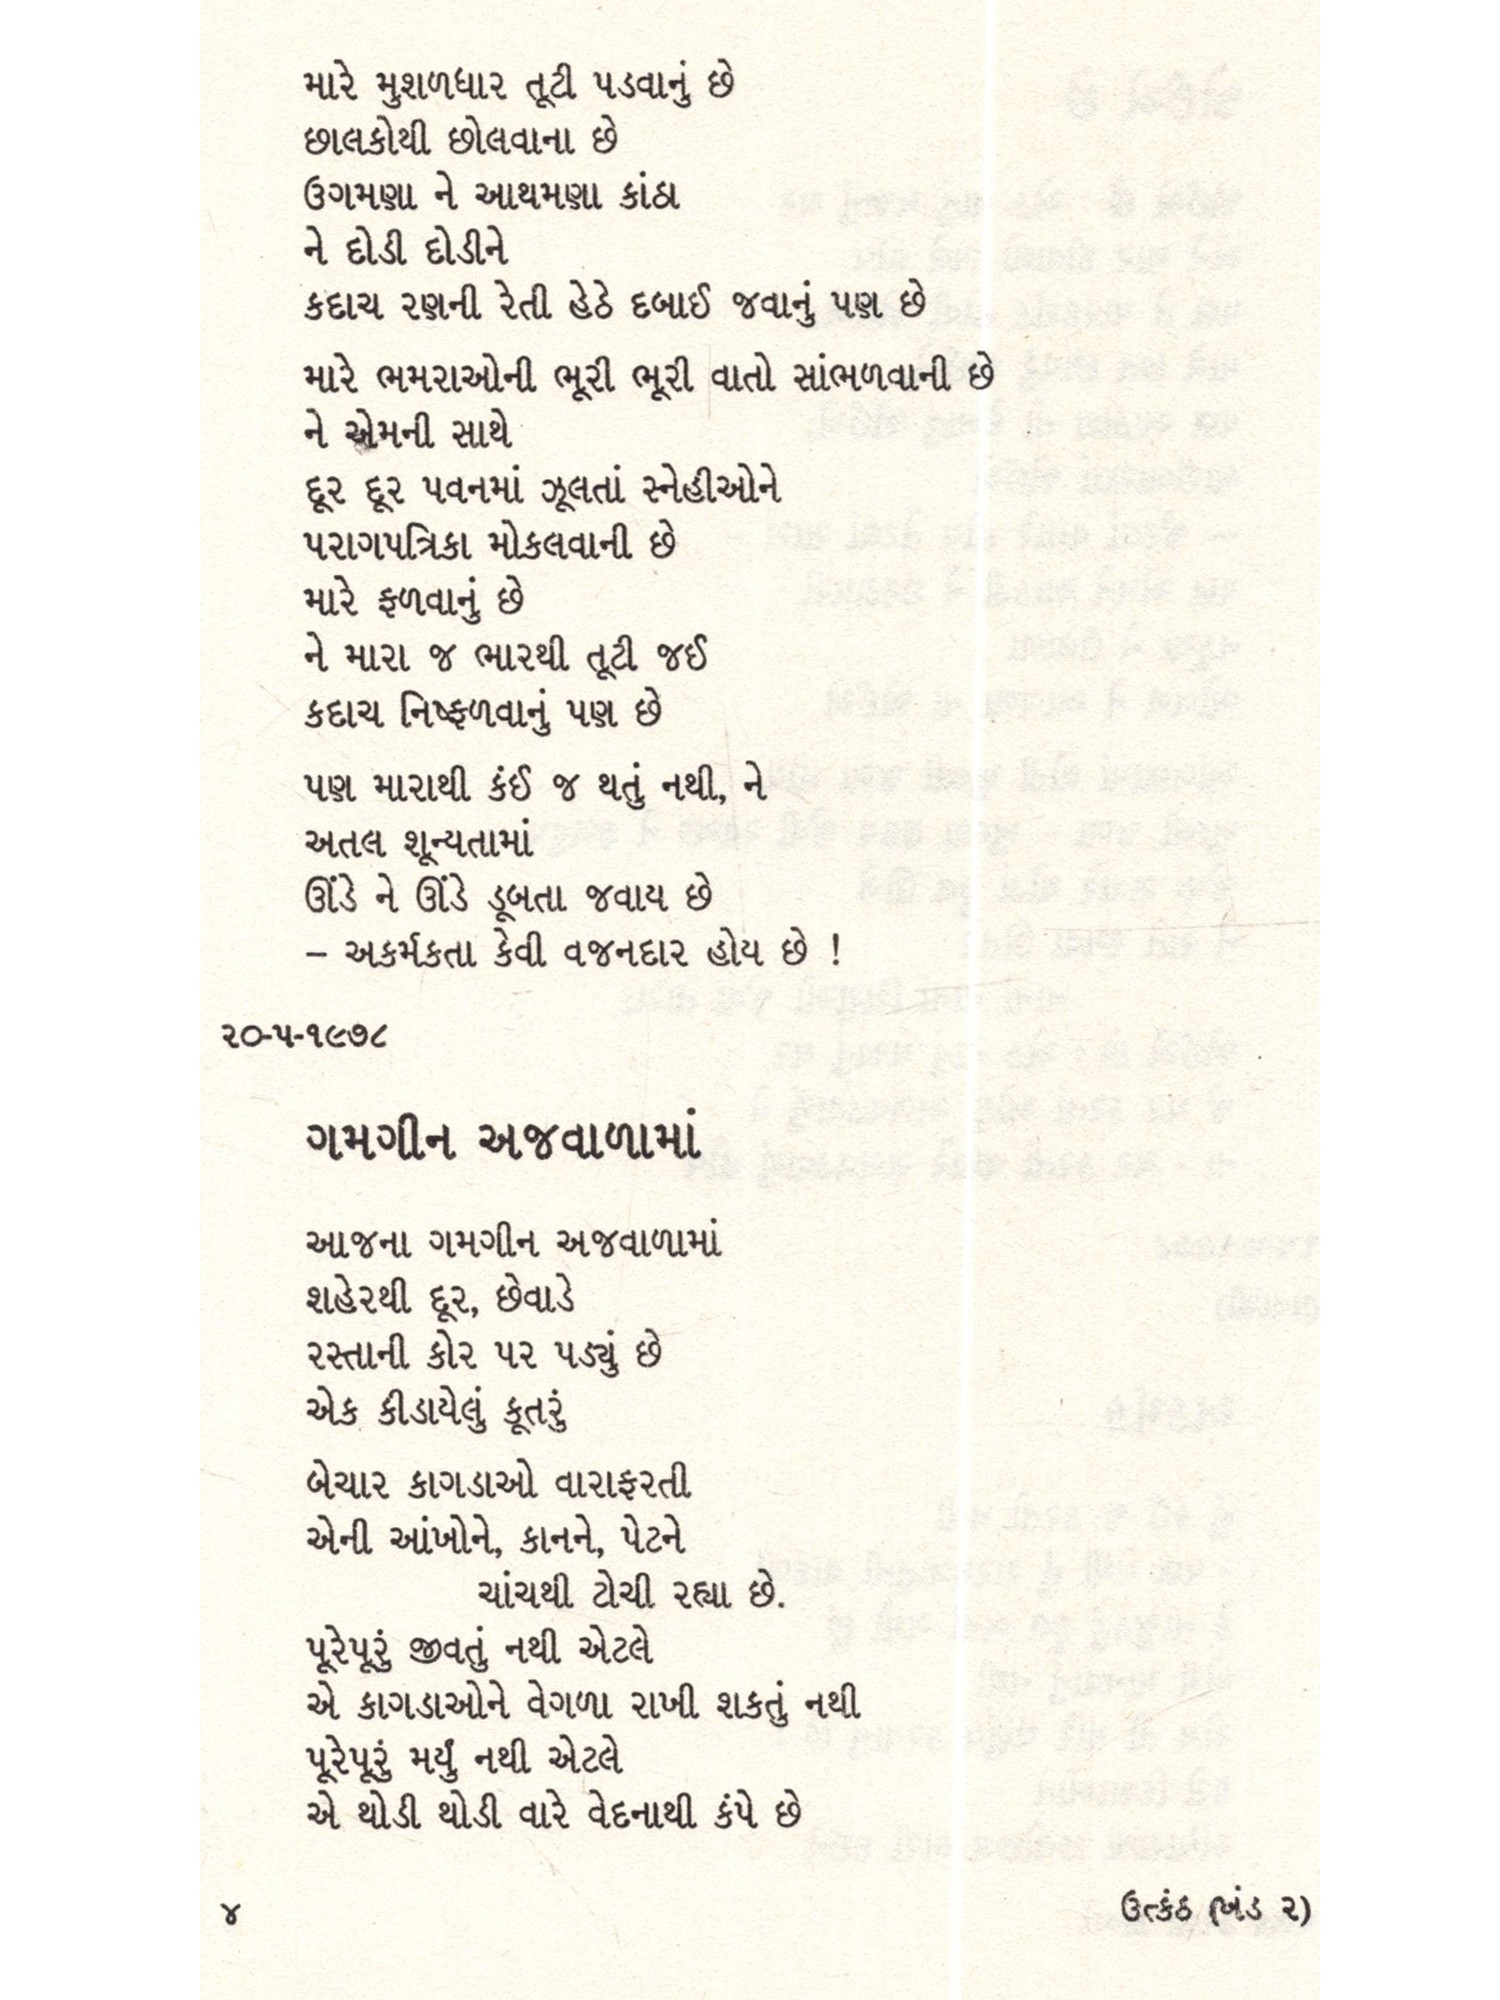 મારે મુશળધાર તૂટી પડવાનું છે
છાલકોથી છોલવાના છે
ઉગમણા ને આથમણા કાંઠા
ને દોડી દોડીને
કદાચ રણની રેતી હેઠે દબાઈ જવાનું પણ છે
મારે ભમરાઓની ભૂરી ભૂરી વાતો સાંભળવાની છે
ને એમની સાથે
દૂર દૂર પવનમાં ઝૂલતાં સ્નેહીઓને
પરાગપત્રિકા મોકલવાની છે
મારે ફળવાનું છે
ને મારા જ ભારથી તૂટી જઈ
કદાચ નિષ્ફળવાનું પણ છે
પણ મારાથી કંઈ જ થતું નથી, ને
અતલ શૂન્યતામાં
ઊંડે ને ઊંડે ડૂબતા જવાય છે
– અકર્મકતા કેવી વજનદાર હોય છે !
૨૦-૫-૧૯૭૮
ગમગીન અજવાળામાં
આજના ગમગીન અજવાળામાં
શહેરથી દૂર, છેવાડે
રસ્તાની કોર પર પડ્યું છે
એક કીડાયેલું કૂતરું
બેચાર કાગડાઓ વારાફરતી
એની આંખોને, કાનને, પેટને
ચાંચથી ટોચી રહ્યા છે.
પૂરેપૂરું જીવતું નથી એટલે
એ કાગડાઓને વેગળા રાખી શકતું નથી
પૂરેપૂરું મર્યું નથી એટલે
એ થોડી થોડી વારે વેદનાથી કંપે છે
૪
ઉત્કંઠ (ખંડ ૨)